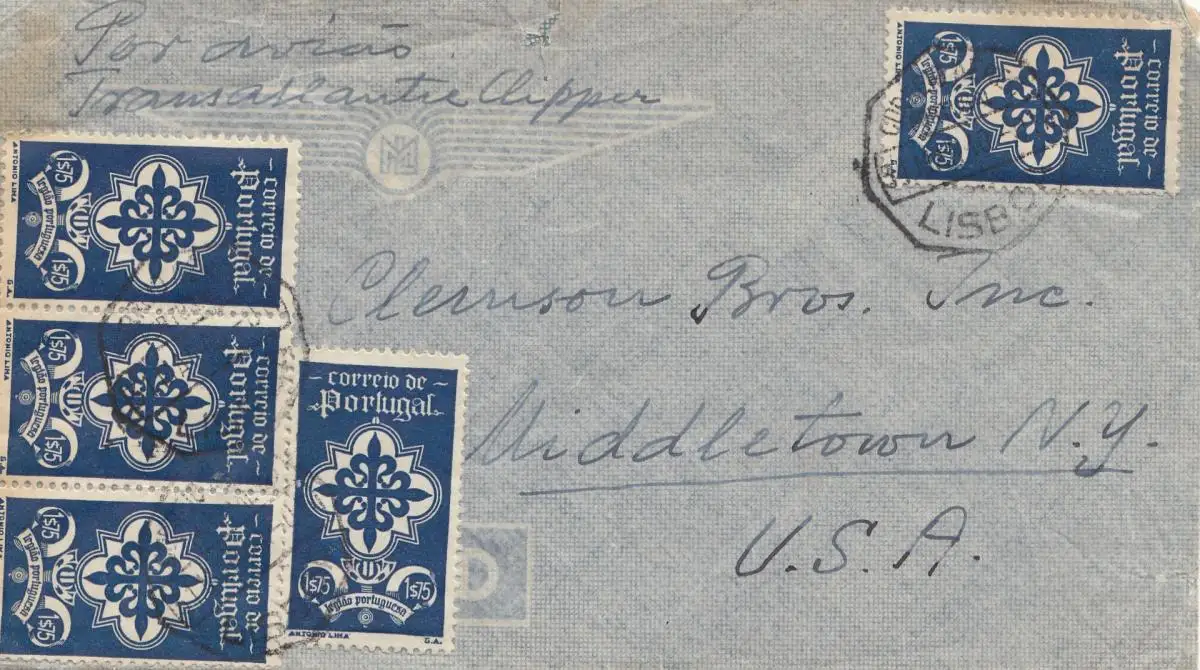 Por avião
Transatlantic Clipper
Clemson Bros. Inc.
Middletown N.Y.
U.S.A.
correio de
Portugal
1$75
1$75
legião portuguesa
ANTONIO LIMA
LISBO
correio de
Portugal
1$75
1$75
legião portuguesa
ANTONIO LIMA
G.A.
correio de
Portugal
1$75
1$75
legião portuguesa
ANTONIO LIMA
G.A.
correio de
Portugal
1$75
1$75
legião portuguesa
ANTONIO LIMA
correio de
Portugal
1$75 1$75
legião portuguesa
ANTONIO LIMA G.A.